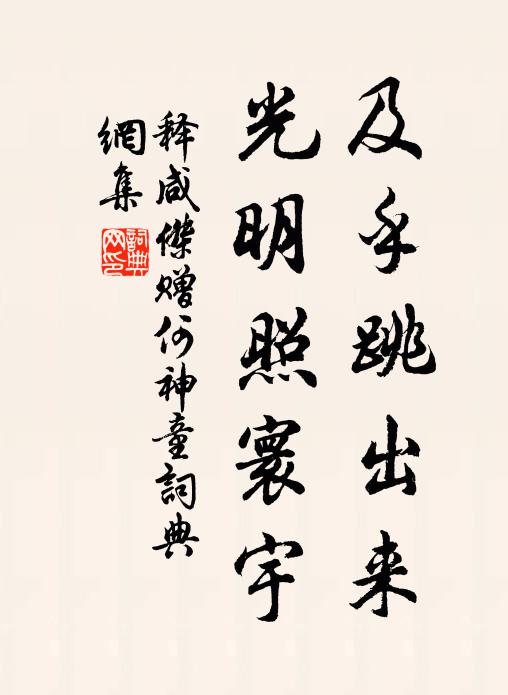 及乎跳出来
光明照寰宇
释咸傑赠何神童詞典
網集
詞典
网印